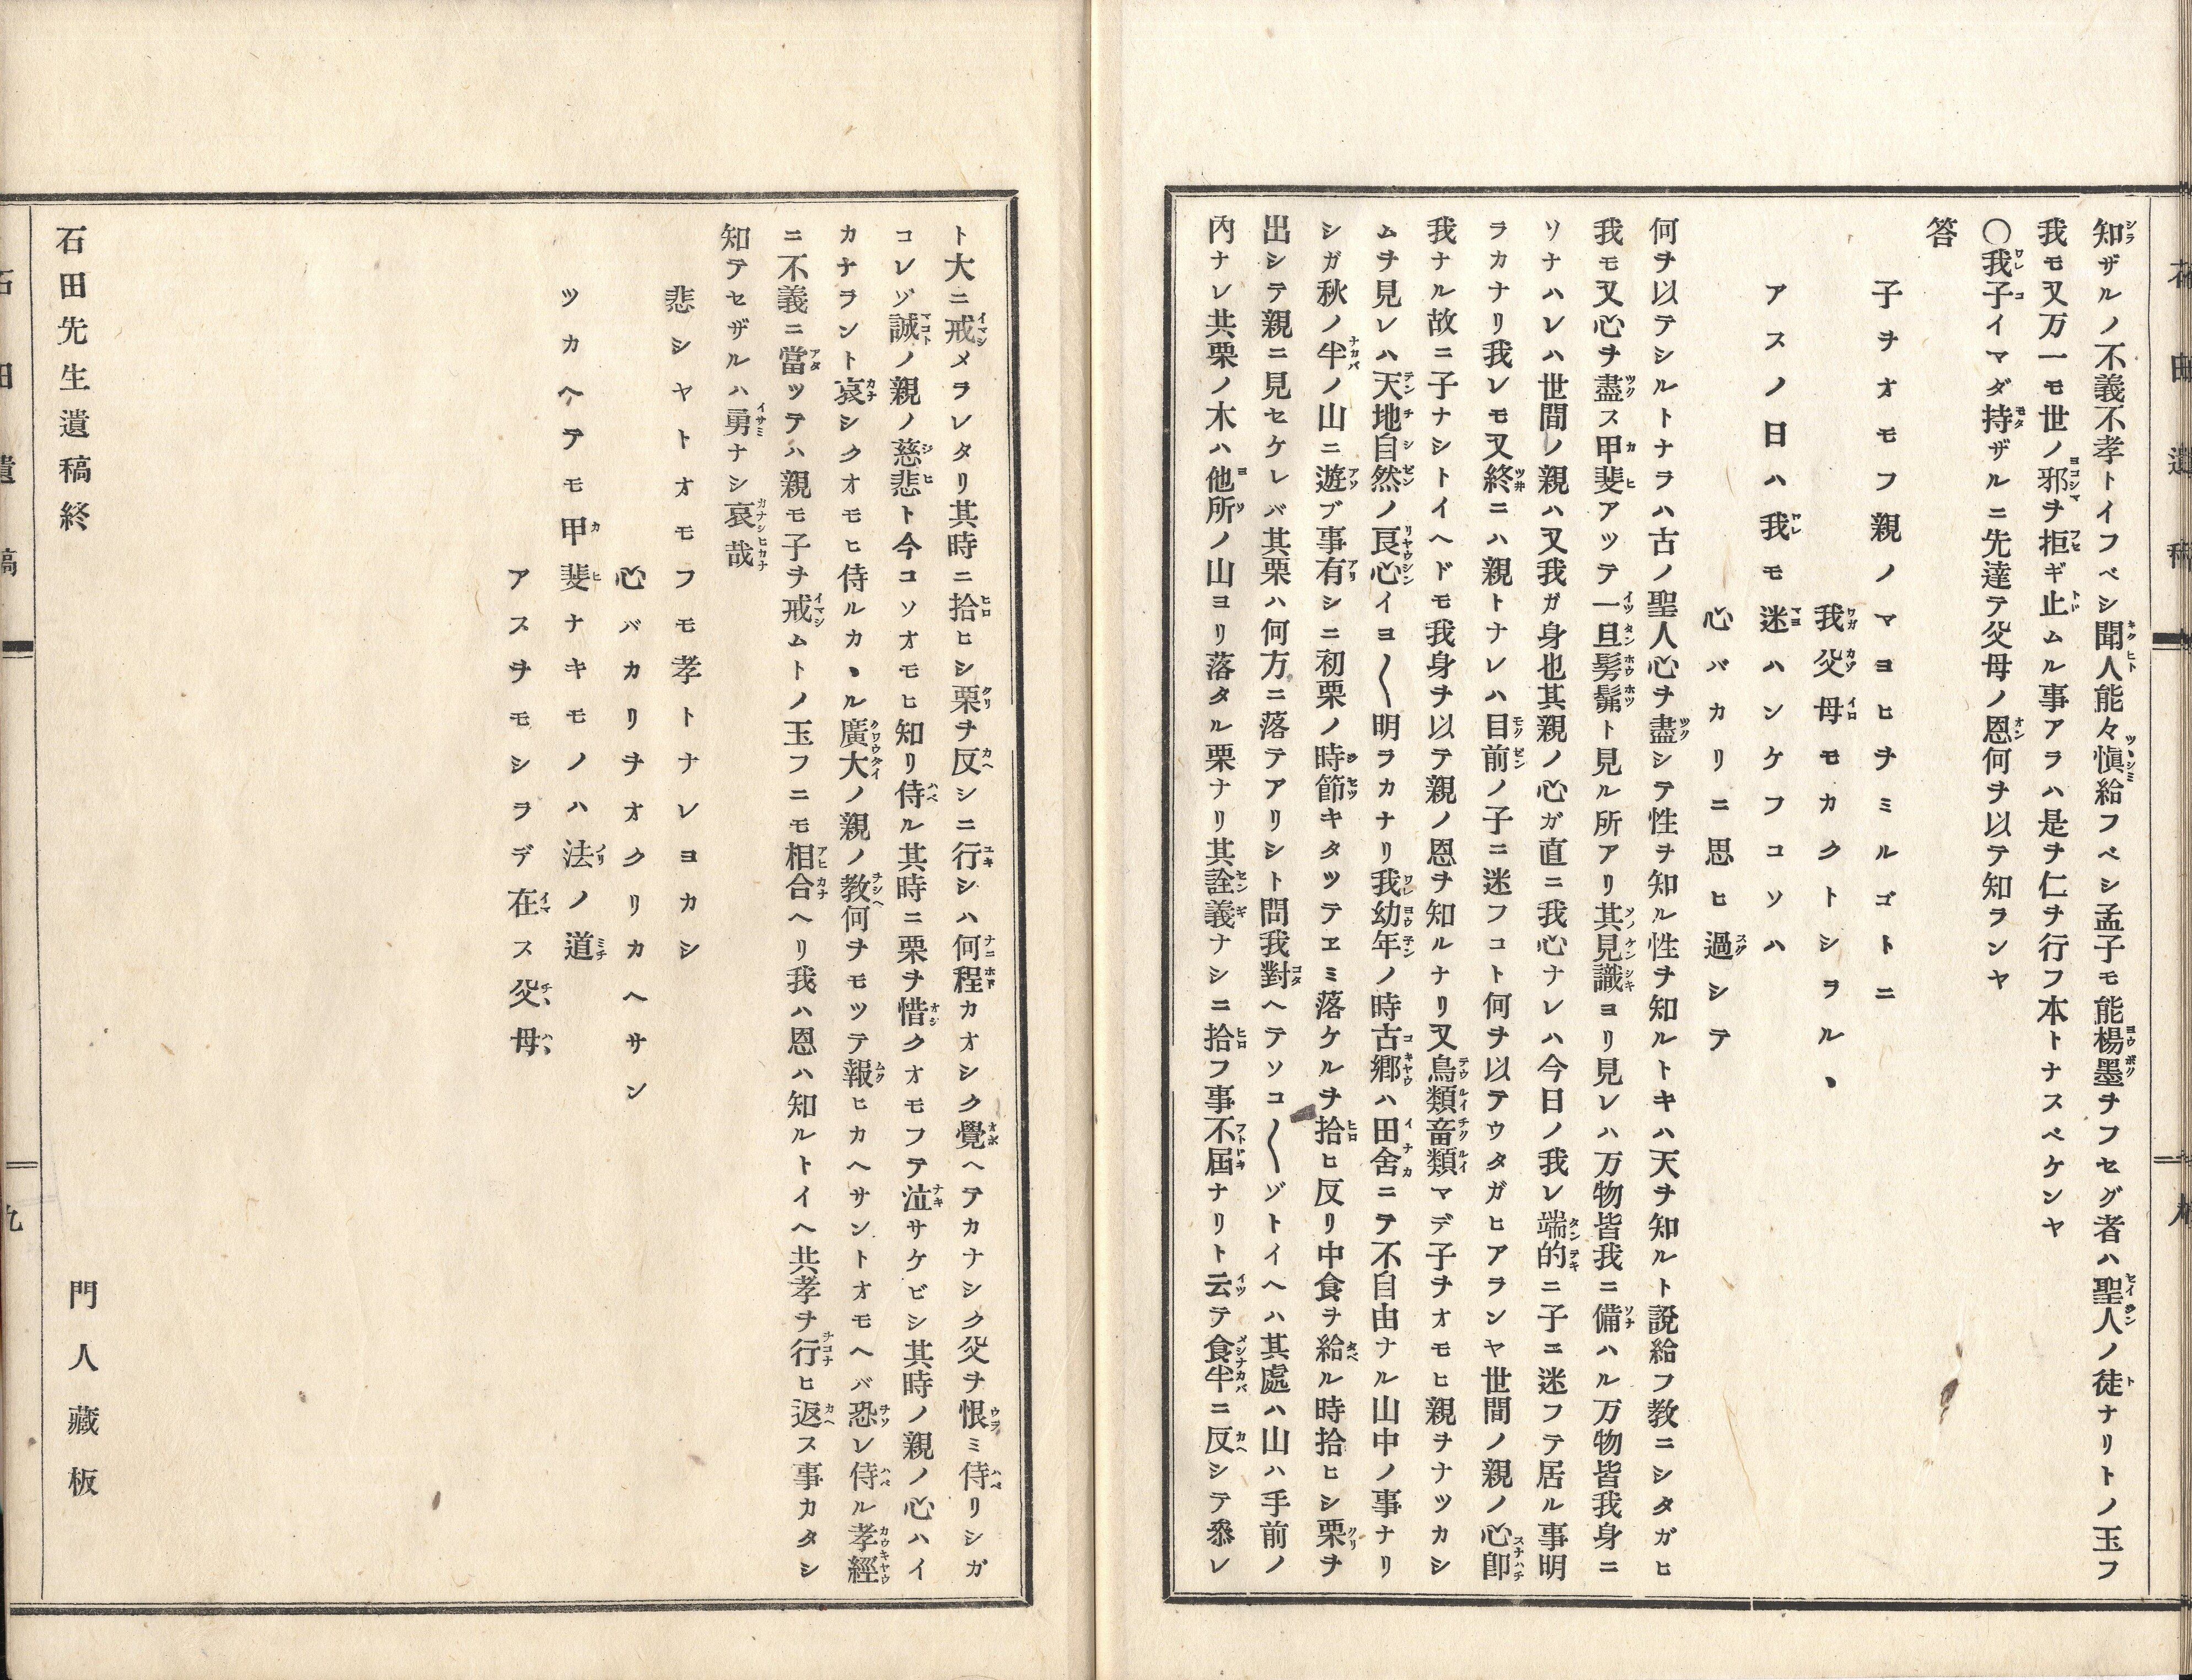 知ザルノ不義不孝トイフベシ聞人能々愼給フベシ孟子モ能楊墨ヲフセグ者ハ聖人ノ徒ナリトノ玉フ
我モ又万一モ世ノ邪ヲ拒ギ止ムル事アラハ是ヲ仁ヲ行フ本トナスベケンヤ
〇我子イマダ持ザルニ先達テ父母ノ恩何ヲ以テ知ランヤ
答
子ヲオモフ親ノマヨヒヲミルゴトニ
我父母モカクトシラルヽ
アスノ日ハ我モ迷ハンケフコソハ
心バカリニ思ヒ過シテ
何ヲ以テシルトナラハ古ノ聖人心ヲ盡シテ性ヲ知ル性ヲ知ルトキハ天ヲ知ルト說給フ教ニシタガヒ
我モ又心ヲ盡ス甲斐アツテ一旦髣髴ト見ル所アリ其見識ヨリ見レハ万物皆我ニ備ハル万物皆我身ニ
ソナハレハ世間ノ親ハ又我ガ身也其親ノ心ガ直ニ我心ナレハ今日ノ我レ端的ニ子ニ迷フテ居ル事明
ラカナリ我レモ又終ニハ親トナレハ目前ノ子ニ迷フコト何ヲ以テウタガヒアランヤ世間ノ親ノ心卽
我ナル故ニ子ナシトイヘドモ我身ヲ以テ親ノ恩ヲ知ルナリ又鳥類畜類マデ子ヲオモヒ親ヲナツカシ
ムヲ見レハ天地自然ノ良心イヨ〱明ラカナリ我幼年ノ時古鄉ハ田舍ニテ不自由ナル山中ノ事ナリ
シガ秋ノ半ノ山ニ遊ブ事有シニ初栗ノ時節キタツテヱミ落ケルヲ拾ヒ反リ中食ヲ給ル時拾ヒシ栗ヲ
出シテ親ニ見セケレバ其栗ハ何方ニ落テアリシト問我對ヘテソコ〱ゾトイヘハ其處ハ山ハ手前ノ
內ナレ共栗ノ木ハ他所ノ山ヨリ落タル栗ナリ其詮義ナシニ拾フ事不屆ナリト云テ食半ニ反シテ參レ
ト大ニ戒メラレタリ其時ニ拾ヒシ栗ヲ反シニ行シハ何程カオシク覺ヘテカナシク父ヲ恨ミ侍リシガ
コレゾ誠ノ親ノ慈悲ト今コソオモヒ知リ侍ル其時ニ栗ヲ惜クオモフテ泣サケビシ其時ノ親ノ心ハイ
カナラント哀シクオモヒ侍ルカヽル廣大ノ親ノ教何ヲモツテ報ヒカヘサントオモヘバ恐レ侍ル孝經
ニ不義ニ當ツテハ親モ子ヲ戒ムトノ玉フニモ相合ヘリ我ハ恩ハ知ルトイヘ共孝ヲ行ヒ返ス事カタシ
知テセザルハ勇ナシ哀哉
悲シヤトオモフモ孝トナレヨカシ
心バカリヲオクリカヘサン
ツカヘテモ甲斐ナキモノハ法ノ道
アスヲモシラデ在ス父母
石田先生遺稿終
門人藏板
石田遺稿
九